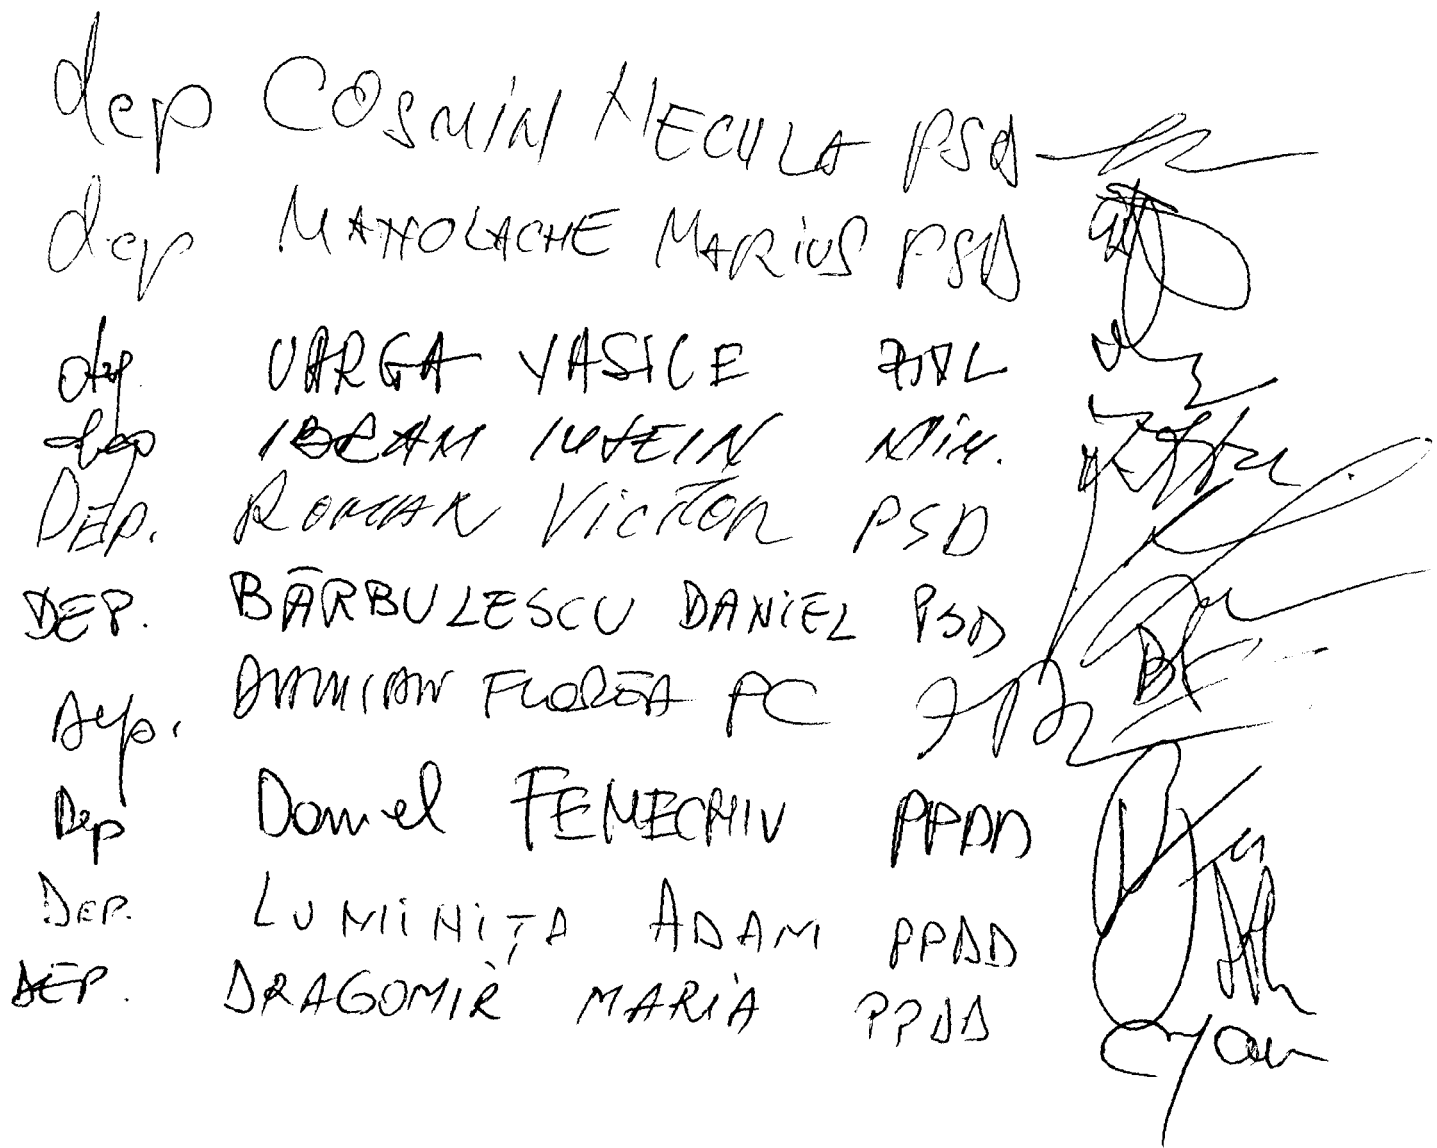 dep COSMIN NECULA PSD
dep MANOLACHE MARIUS PSD
dep. VARGA VASILE PNL
dep IBRAM IUSEIN Min.
DEP. ROMAN VICTOR PSD
DEP. BĂRBULESCU DANIEL PSD
Dep. DAMIAN FLOREA PC
Dep Daniel FENECHIU PPDD
DEP. LUMINIȚA ADAM PPDD
DEP. DRAGOMIR MARIA PPDD